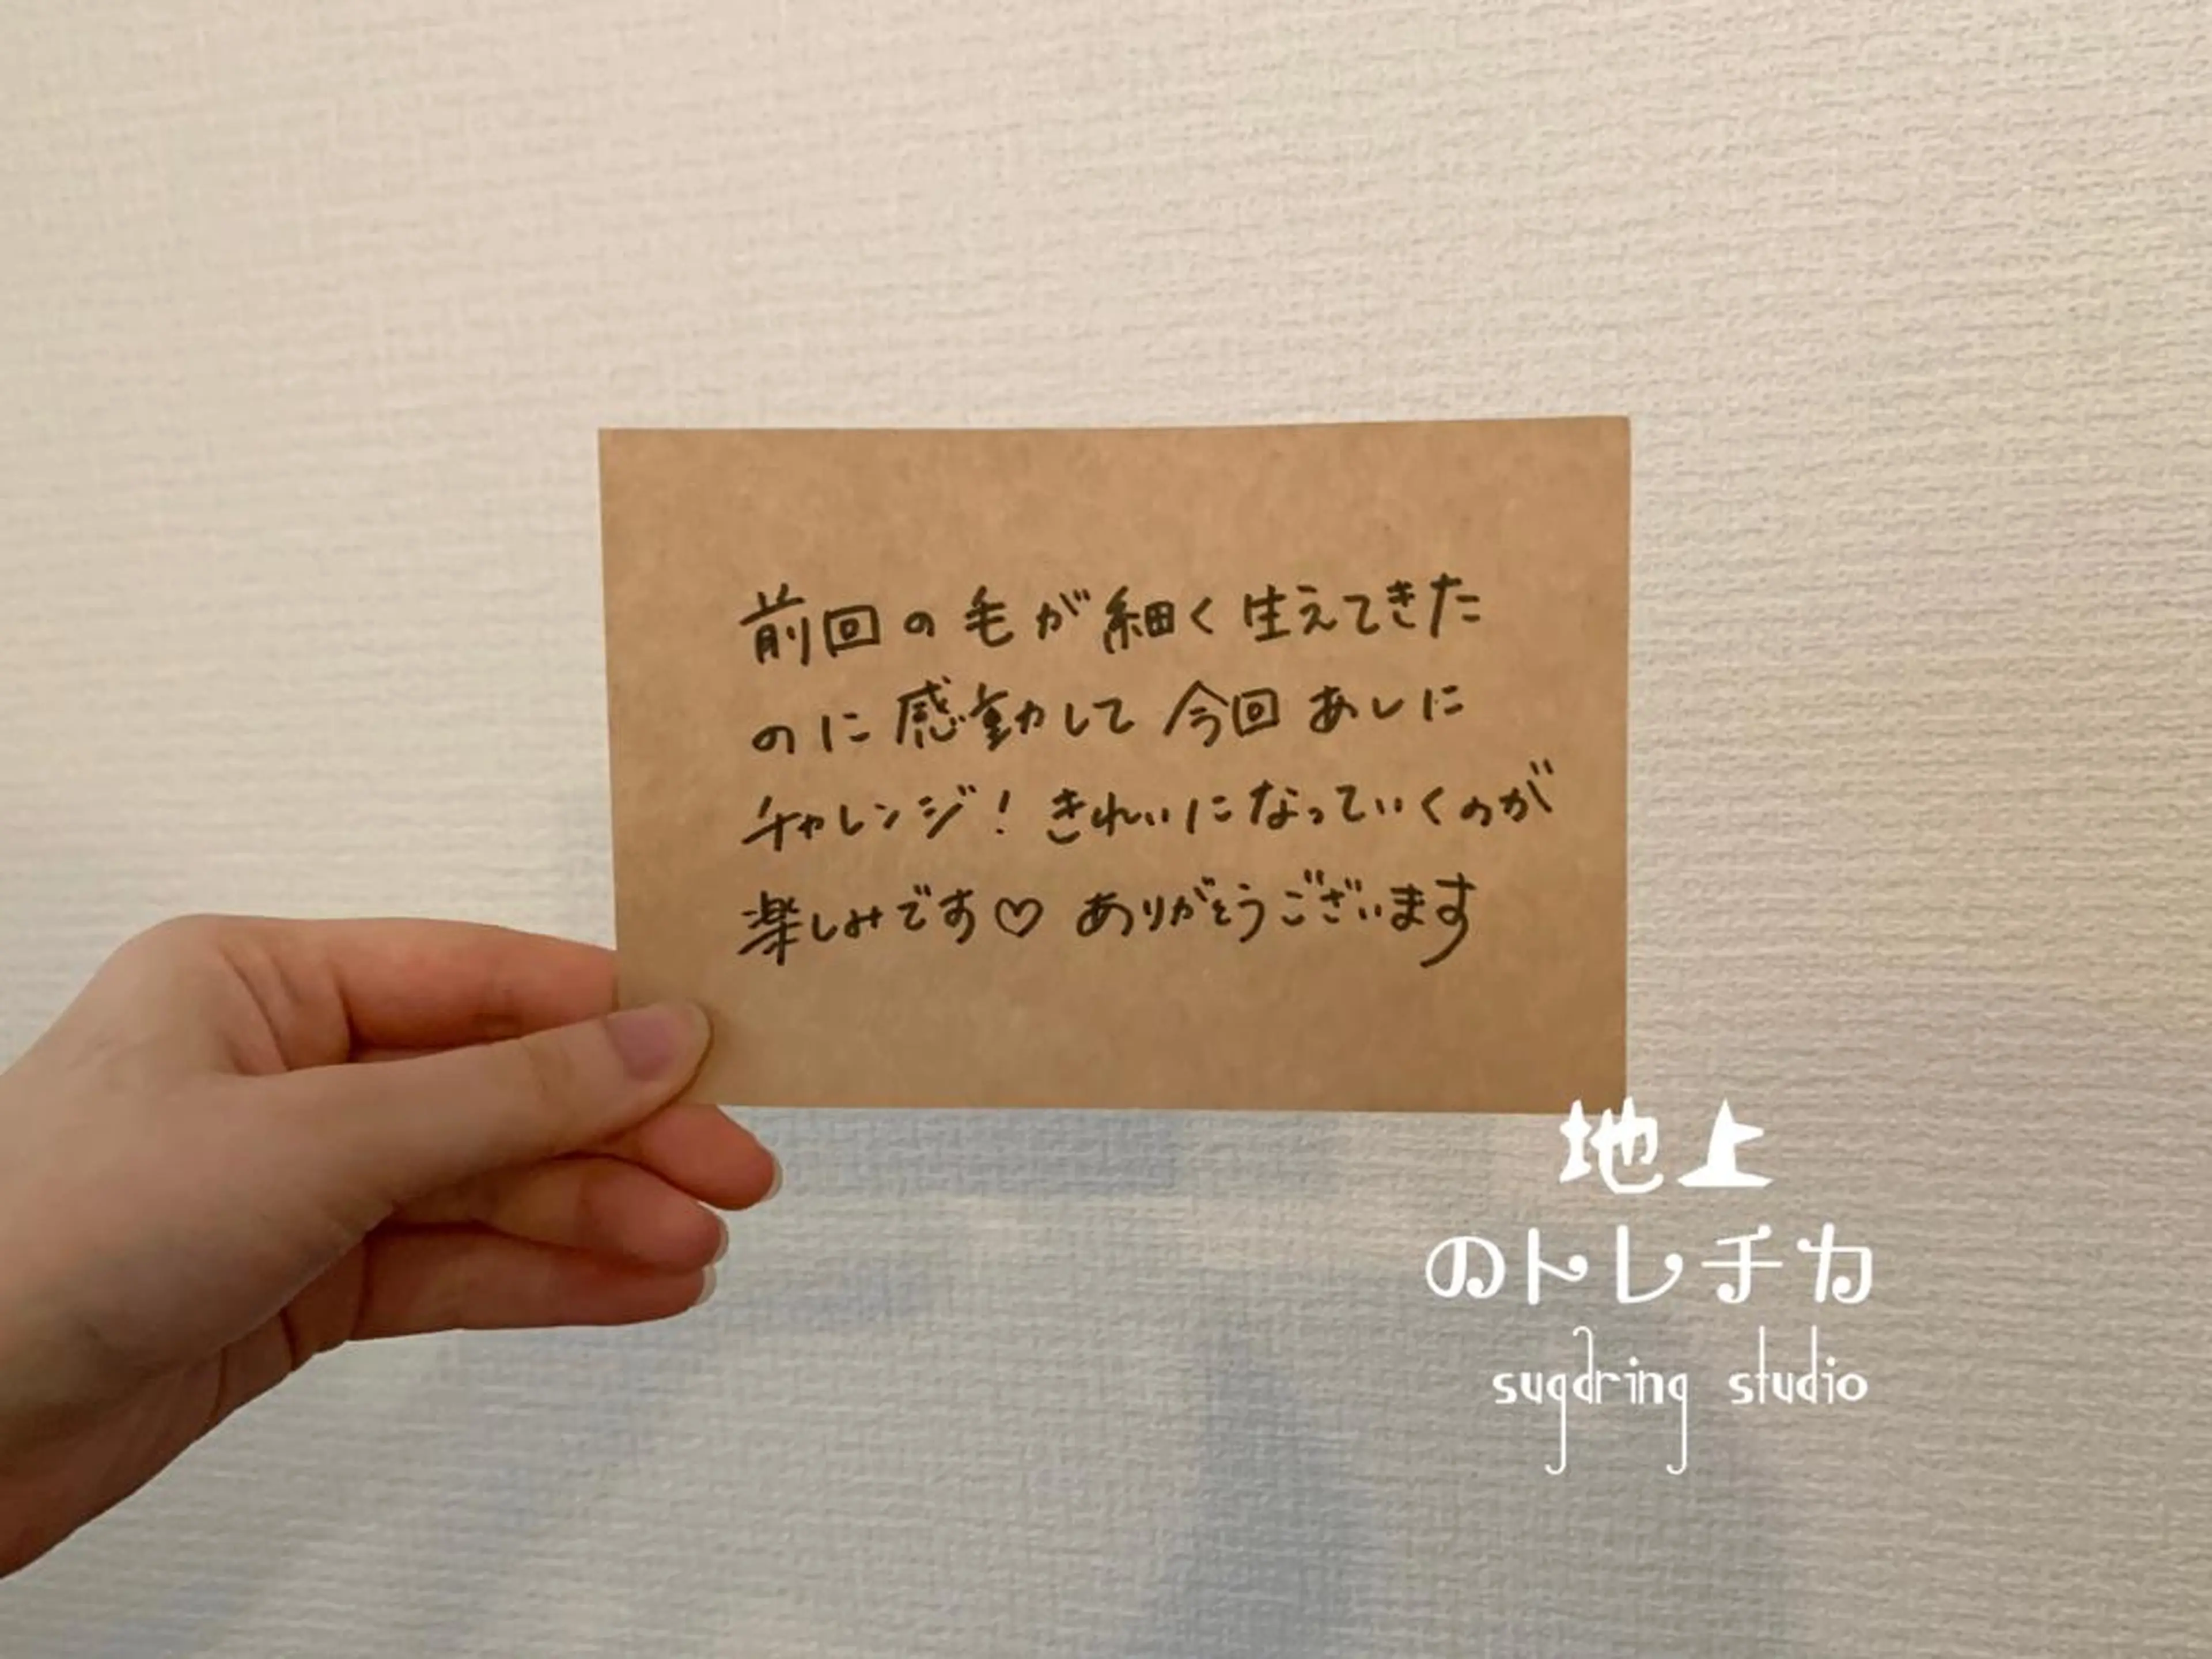 前回の毛が細く生えてきた
のに感動して今回あしに
チャレンジ！きれいになっていくのが
楽しみです♡ ありがとうございます
地上
のトレチカ
sugaring studio